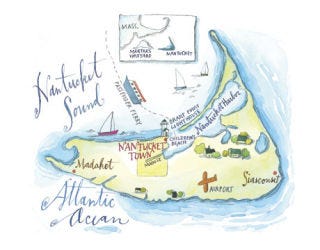 MASS.
MARTHA'S
VINEYARD
NANTUCKET
Nantucket
Sound
PASSENGER FERRY
BRANT POINT
LIGHTHOUSE
Nantucket Harbor
CHILDREN'S
BEACH
NANTUCKET
TOWN
Madaket
AIRPORT
Siasconset
Atlantic
Ocean